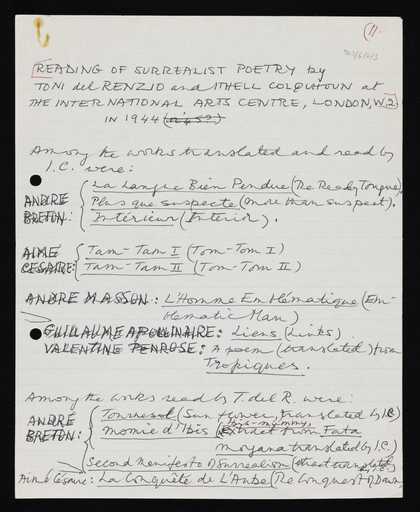 (1).
READING OF SURREALIST POETRY by
TONI del RENZIO and ITHELL COLQUHOUN at
THE INTERNATIONAL ARTS CENTRE, LONDON, W.2.
IN 1944
Among the works translated and read by
I.C. were:
La Langue Bien Pendue (The Ready Tongue)
ANDRE Plus que suspecte (more than suspect).
BRETON: Intérieur (Interior).
AIME Tam-Tam I (Tom-Tom I)
CESAIRE: Tam-Tam II (Tom-Tom II)
ANDRE MASSON: L'Homme Emblématique (Em-
blematic Man)
GUILLAUME APOLLINAIRE: Liens (Links).
VALENTINE PENROSE: A poem (translated) from
Tropiques.
Among the works read by T. del R. were:
ANDRE Tournesol (Sunflower, translated by I.C.)
BRETON: Momie d'Ibis (Ibis-mummy, Extract from Fata
Morgana translated by I.C.)
Second Manifesto of Surrealism (extract translated I.C.)
Aimé Césaire: La Conquête de L'Aube (The Conquest of Dawn,